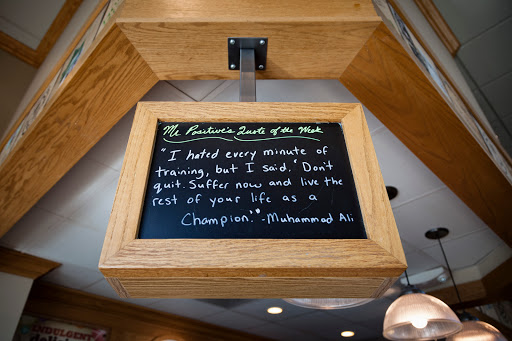 Mr Positive's Quote of the Week
"I hated every minute of
training, but I said. 'Don't
quit. Suffer now and live the
rest of your life as a
Champion.'" -Muhammad Ali
INDULGENT